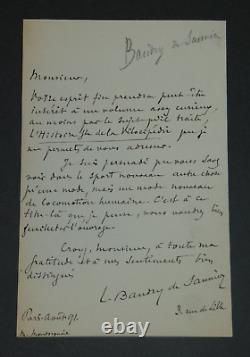 Baudry de Saunier
Monsieur,
Votre esprit fin prendra peut être
intérêt à un volume assez curieux,
au moins par le sujet qu'il traite,
L'Histoire de la Vélocipédie que je
me permets de vous adresser.
Je suis persuadé que vous
voir dans le sport nouveau autre chose
qu'une mode, mais un mode nouveau
de locomotion humaine. C'est à ce
titre-là que je pense, vous voudrez bien
feuilleter l'ouvrage.
Croyez, monsieur, à toute ma
gratitude et à mes sentiments bien
distingués
L. Baudry de Saunier
Paris-Août 91.